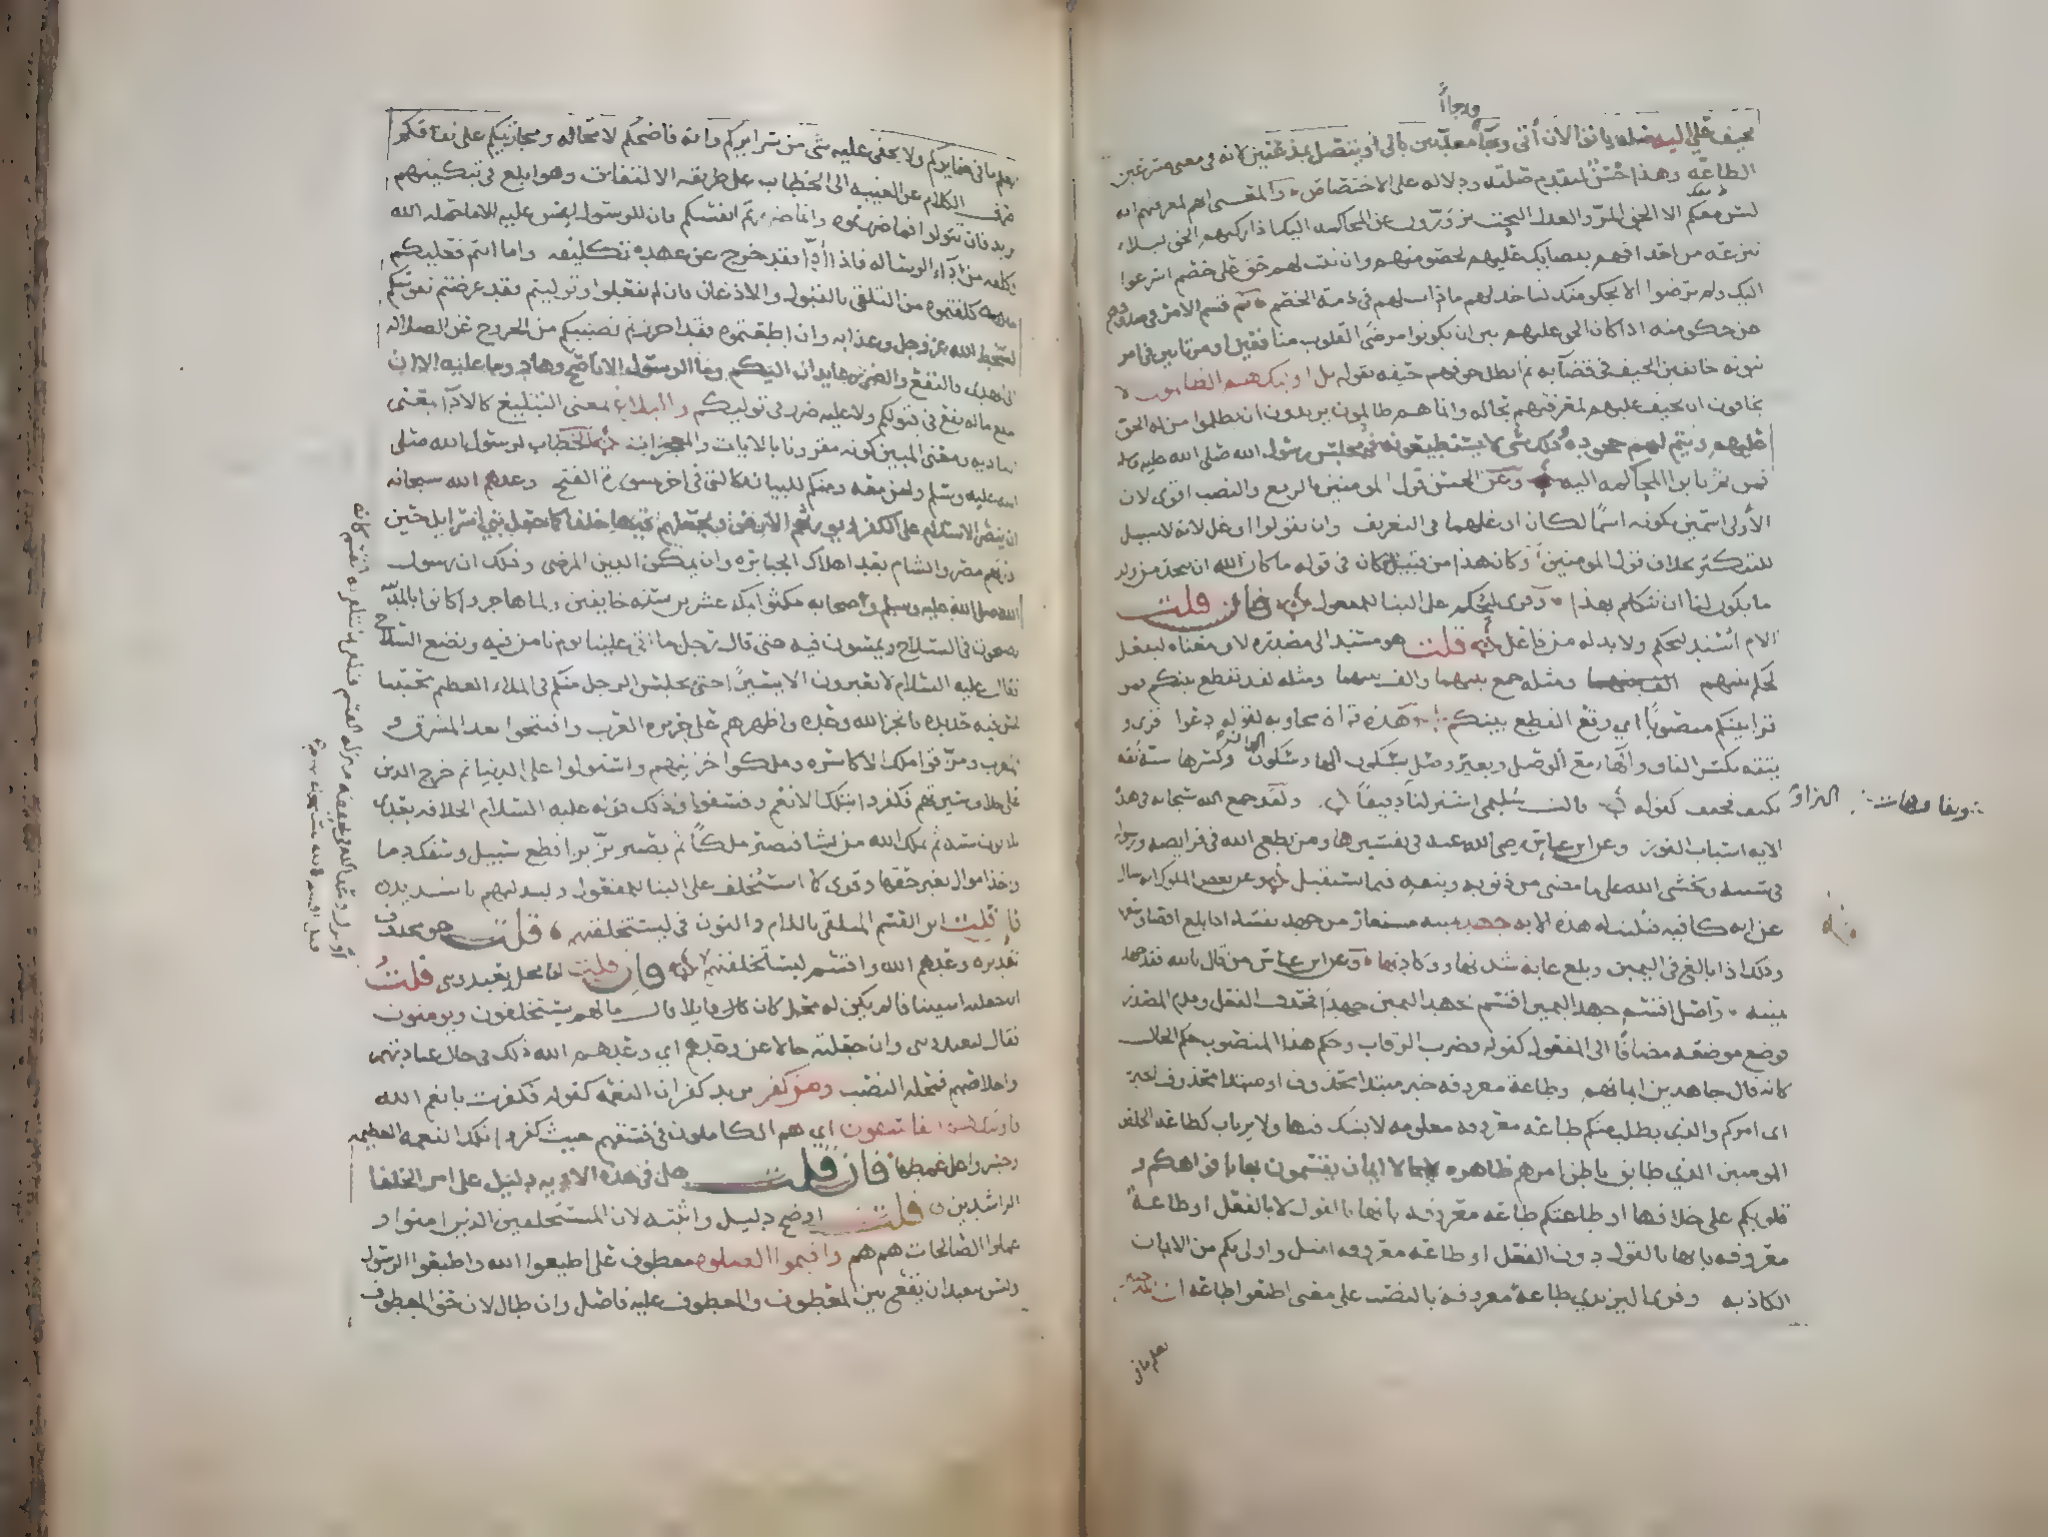 وجاآ
يحيف عليهم اليه صله ياتوا لان أتى وجآ معديين بالى او يتصل بمذعنين لانه فى معنى مسرعين
الطاعه وهذا احسن لتقدم صلته ودلاله على الاختصاص والمعنى انهم لمعرفتهم انه
ليس معكم الا الحق المرّ والعدل البحت يزورّون عن المحاكمه اليك اذا ركبهم الحق ليلا
تنزعه من احداقهم بقضايك عليهم لخصومهم وان ثبت لهم حق على خصم اسرعوا
اليك ولم يرضوا الا بحكومتك لتاخذ لهم ما ذاب لهم فى ذمة الخصم ثم قسم الامر فى صدودهم
عن حكومته اذا كان الحق عليهم بين ان يكونوا مرضى القلوب منافقين او مرتابين فى امر
نبوته خايفين الحيف فى قضآيه ثم ابطل خوفهم حيفه بقوله بل اوليك هم الظالمون لا
يخافون ان يحيف عليهم لمعرفتهم بحاله وانما هم ظالمون يريدون ان يظلموا من له الحق
عليهم ويتم لهم جحوده وذلك شى لا يستطيعونه فى مجلس رسول الله صلى الله عليه وسلم
فمن ثم يابوا المحاكمه اليه وعن الحسن قول المومنين بالرفع والنصب اقوى لان
الأولى اسمين بكونه اسمًا لكان اوغلهما فى التعريف وان يقولوا اوغل لانه لا سبيل
للتنكير بخلاف قول المومنين وكان هذا من قبيل كان فى قوله ما كان لله ان يتخذ من ولد
ما يكون لنا ان نتكلم بهذا وقرى ليُحكم على البنا للمفعول فان قلت
الام اسند ليحكم ولا بد له من فاعل قلت هو مسند الى مصدره لان معناه ليفعل
الحكم بينهم ومثله جمع بينهما والف بينهما ومثله لقد تقطع بينكم فيمن
قرا بينكم منصوبًا اي وقع التقطع بينكم وهذه قراة مجاوبه لقوله دعوا قرى و
يتقه بكسر القاف والهاء مع الوصل وبغير وصل وبسكون الهاء وبسكون القاف وكسر الها شبه تقه
بكتف فخفف كقوله قالت سليمى اشتر لنا دقيقًا ولقد جمع الله سبحانه فى هذه
الايه اسباب الفوز وعن ابن عباس رضى الله عنه فى تفسيرها ومن يطع الله فى فرايضه ورسوله
فى سننه ويخشى الله على ما مضى من ذنوبه ويتقه فيما يستقبل وعن بعض الملوك انه سال
عن ايه كافيه فتليت له هذه الايه جهد يمينه مستعار من جهد نفسه اذا بلغ اقصا وسعها
وذلك اذا بالغ فى اليمين وبلغ غايه شدتها ووكادتها وعن ابن عباس من قال بالله فقد جهد
يمينه واصل اقسم جهد اليمين اقسم بجهد اليمين جهدًا فحذف الفعل وقدم المصدر
فوضع موضعه مضافًا الى المفعول كقوله فضرب الرقاب وحكم هذا المنصوب حكم الحال
كانه قال جاهدين ايمانهم وطاعة معروفه خبر مبتدا محذوف او مبتدا محذوف الخبر
اى امركم والذى يطلب منكم طاعه معروفه معلومه لا يشك فيها ولا يرتاب كطاعه الخلص
المومنين الذي طابق باطن امرهم ظاهره لا ايمان يقسمون بها بافواهكم و
قلوبكم على خلافها او طاعتكم طاعه معروفه بانها بالقول لا بالفعل او طاعة
معروفه بانها بالقول دون الفعل او طاعه معروفه امثل واولى بكم من الايمان
الكاذبه وقرا اليزيدي طاعة معروفة بالنصب على معنى اطيعوا طاعه ان الله خبير
يعلم ما فى
يعلم ما فى ضمايركم ولا يخفى عليه شى من سرايركم وانه فاضحكم لا محاله ومجازيكم على نفاقكم
صرف الكلام عن الغيبه الى الخطاب على طريقه الالتفات وهو ابلغ فى تبكيتهم
يريد فان تتولوا فما ضررتموه وانما ضررتم انفسكم فان للرسول ليس عليه الا ما حمله الله
وكلفه من آداء الرساله فاذا أدّا فقد خرج عن عهده تكليفه واما انتم فعليكم
ما كلفتموه من التلقى بالقبول والاذعان فان لم تفعلوا وتوليتم فقد عرضتم نفوسكم
لسخط الله عز وجل وعذابه وان اطعتموه فقد احرزتم نصيبكم من الخروج عن الضلاله
الى الهدى بالنفع والضرر عايدان اليكم وما الرسول الا ناصح وهاد وما عليه الا ان
يبلغ ماله نفع فى قبولكم ولا عليه ضرر فى توليكم والبلاغ بمعنى التبليغ كالادآ بمعنى
التاديه ومعنى المبين كونه مقرونا بالايات والمعجزات الخطاب لرسول الله صلى
الله عليه وسلم ولمن معه ومنكم للبيان كالتى فى اخر سورة الفتح وعدهم الله سبحانه
ان ينصر الاسلام على الكفر ويورثهم الارض ويجعلهم فيها خلفا كما جعل بنى اسرايل حين
اورثهم مصر والشام بعد اهلاك الجبابره وان يمكن الدين المرضى وذلك ان رسول
الله صلى الله عليه وسلم واصحابه مكثوا بمكه عشر سنه خايفين ولما هاجروا كانوا بالمدينه
يصبحون فى السلاح ويمسون فيه حتى قال رجل ما اتى علينا يوم نامن فيه ونضع السلاح
فقال عليه السلام لا تغبرون الا يسيرًا حتى يجلس الرجل منكم فى الملاء العظيم محتبيا
ليس فيه حديده فانجز الله وعده واظهرهم على جزيره العرب وافتتحوا بعد المشرق و
المغرب ومزّقوا ملك الاكاسره وملكوا خزاينهم واستولوا على الدنيا ثم خرج الذين
على خلاف سيرتهم فكفروا بتلك الانعم وفسقوا وذلك قوله عليه السلام الخلافه بعدى
ثلاثون سنه ثم يملك الله من يشا فتصير ملكًا ثم تصير بزّيزا قطع سبيل وسفك دما
واخذ اموال بغير حقها وقرى كما استُخلف على البنا للمفعول وليبدلنهم بالتشديد
فان قلت اين القسم المتلقى باللام والنون فى ليستخلفنهم قلت هو محذوف
تقديره وعدهم الله واقسم ليستخلفنهم فان قلت ما محل يعبدوننى قلت
ان جعلته استينافا لم يكن له محل كان قايلا قال ما لهم يستخلفون ويومنون
فقال يعبدوننى وان جعلته حالا عن وعدهم اي وعدهم الله ذلك فى حال عبادتهم
واخلاصهم فمحله النصب ومن كفر يريد كفران النعمه كقوله فكفرت بانعم الله
فاولئك هم الفاسقون اي هم الكاملون فى فسقهم حيث كفروا تلك النعمه العظيمه
وجسروا على غمطها فان قلت هل فى هذه الايه دليل على امر الخلفا
الراشدين قلت اوضح دليل وابينه لان المستخلفين الذين امنوا و
عملوا الصالحات هم هم واقيموا الصلوه معطوف على اطيعوا الله واطيعوا الرسول
وليس ببعيد ان يقع بين المعطوف والمعطوف عليه فاصل وان طال لان حق المعطوف